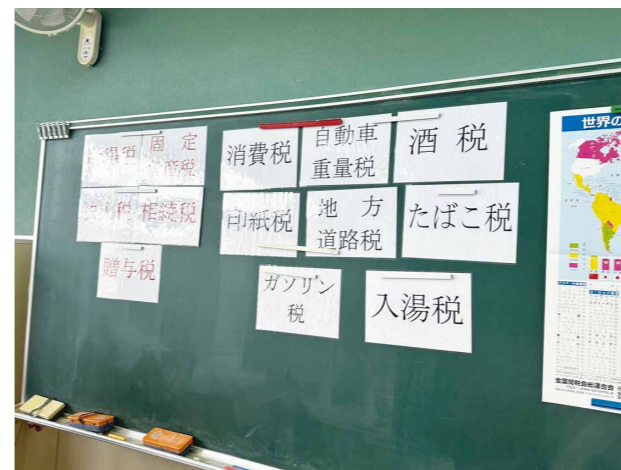 固定
消費税
自動車
重量税
酒税
相続税
印紙税
地方
道路税
たばこ税
贈与税
ガソリン
税
入湯税
世界の
全国間税会総連合会